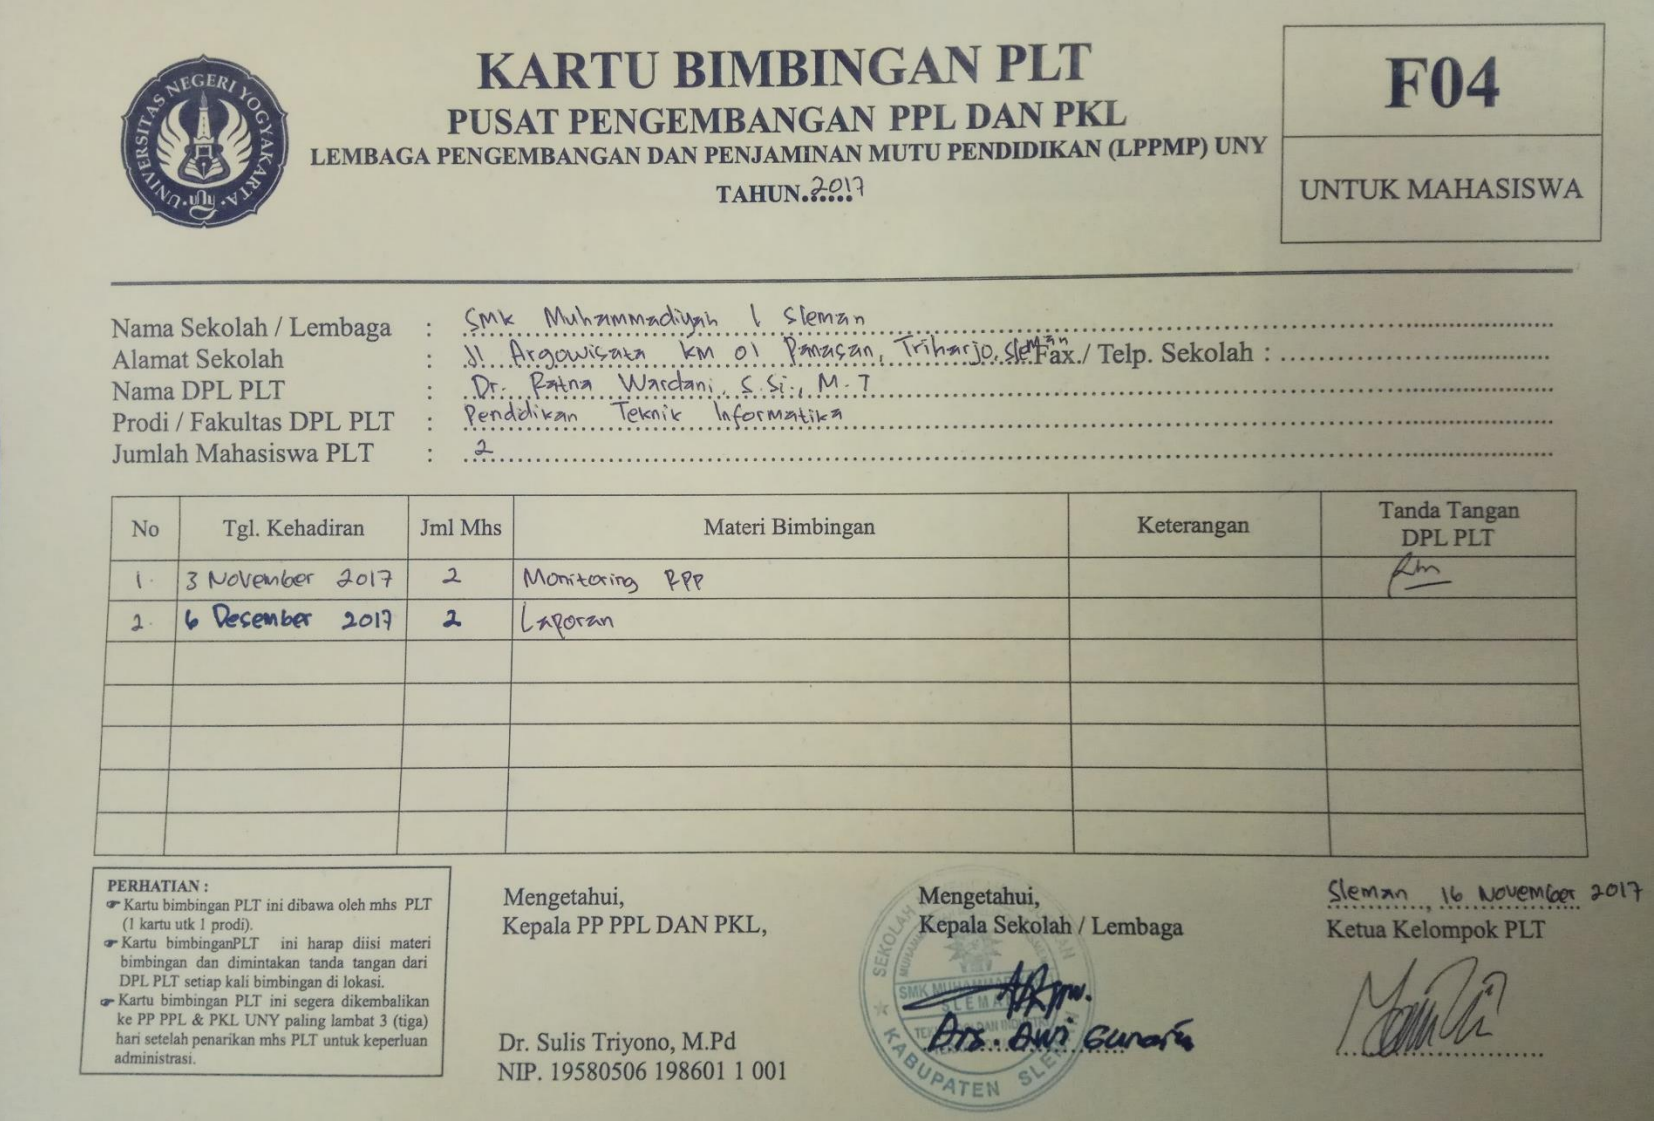 UNIVERSITAS NEGERI YOGYAKARTA
KARTU BIMBINGAN PLT
PUSAT PENGEMBANGAN PPL DAN PKL
LEMBAGA PENGEMBANGAN DAN PENJAMINAN MUTU PENDIDIKAN (LPPMP) UNY
TAHUN 2017
F04
UNTUK MAHASISWA
Nama Sekolah / Lembaga : SMK Muhammadiyah 1 Sleman
Alamat Sekolah : Jl Argowisata KM 01 Panasan, Triharjo, Sleman Fax./ Telp. Sekolah :
Nama DPL PLT : Dr. Ratna Wardani, S.Si., M.T
Prodi / Fakultas DPL PLT : Pendidikan Teknik Informatika
Jumlah Mahasiswa PLT : 2
No Tgl. Kehadiran Jml Mhs Materi Bimbingan Keterangan Tanda Tangan DPL PLT
1. 3 November 2017 2 Monitoring RPP
2. 6 Desember 2017 2 Laporan
PERHATIAN :
☞ Kartu bimbingan PLT ini dibawa oleh mhs PLT
(1 kartu utk 1 prodi).
☞ Kartu bimbinganPLT ini harap diisi materi
bimbingan dan dimintakan tanda tangan dari
DPL PLT setiap kali bimbingan di lokasi.
☞ Kartu bimbingan PLT ini segera dikembalikan
ke PP PPL & PKL UNY paling lambat 3 (tiga)
hari setelah penarikan mhs PLT untuk keperluan
administrasi.
Mengetahui,
Kepala PP PPL DAN PKL,
Dr. Sulis Triyono, M.Pd
NIP. 19580506 198601 1 001
Mengetahui,
Kepala Sekolah / Lembaga
SEKOLAH
SMK MUHAMMADIYAH
SLEMAN
KABUPATEN SLEMAN
Drs. Dwi
Sleman, 16 November 2017
Ketua Kelompok PLT